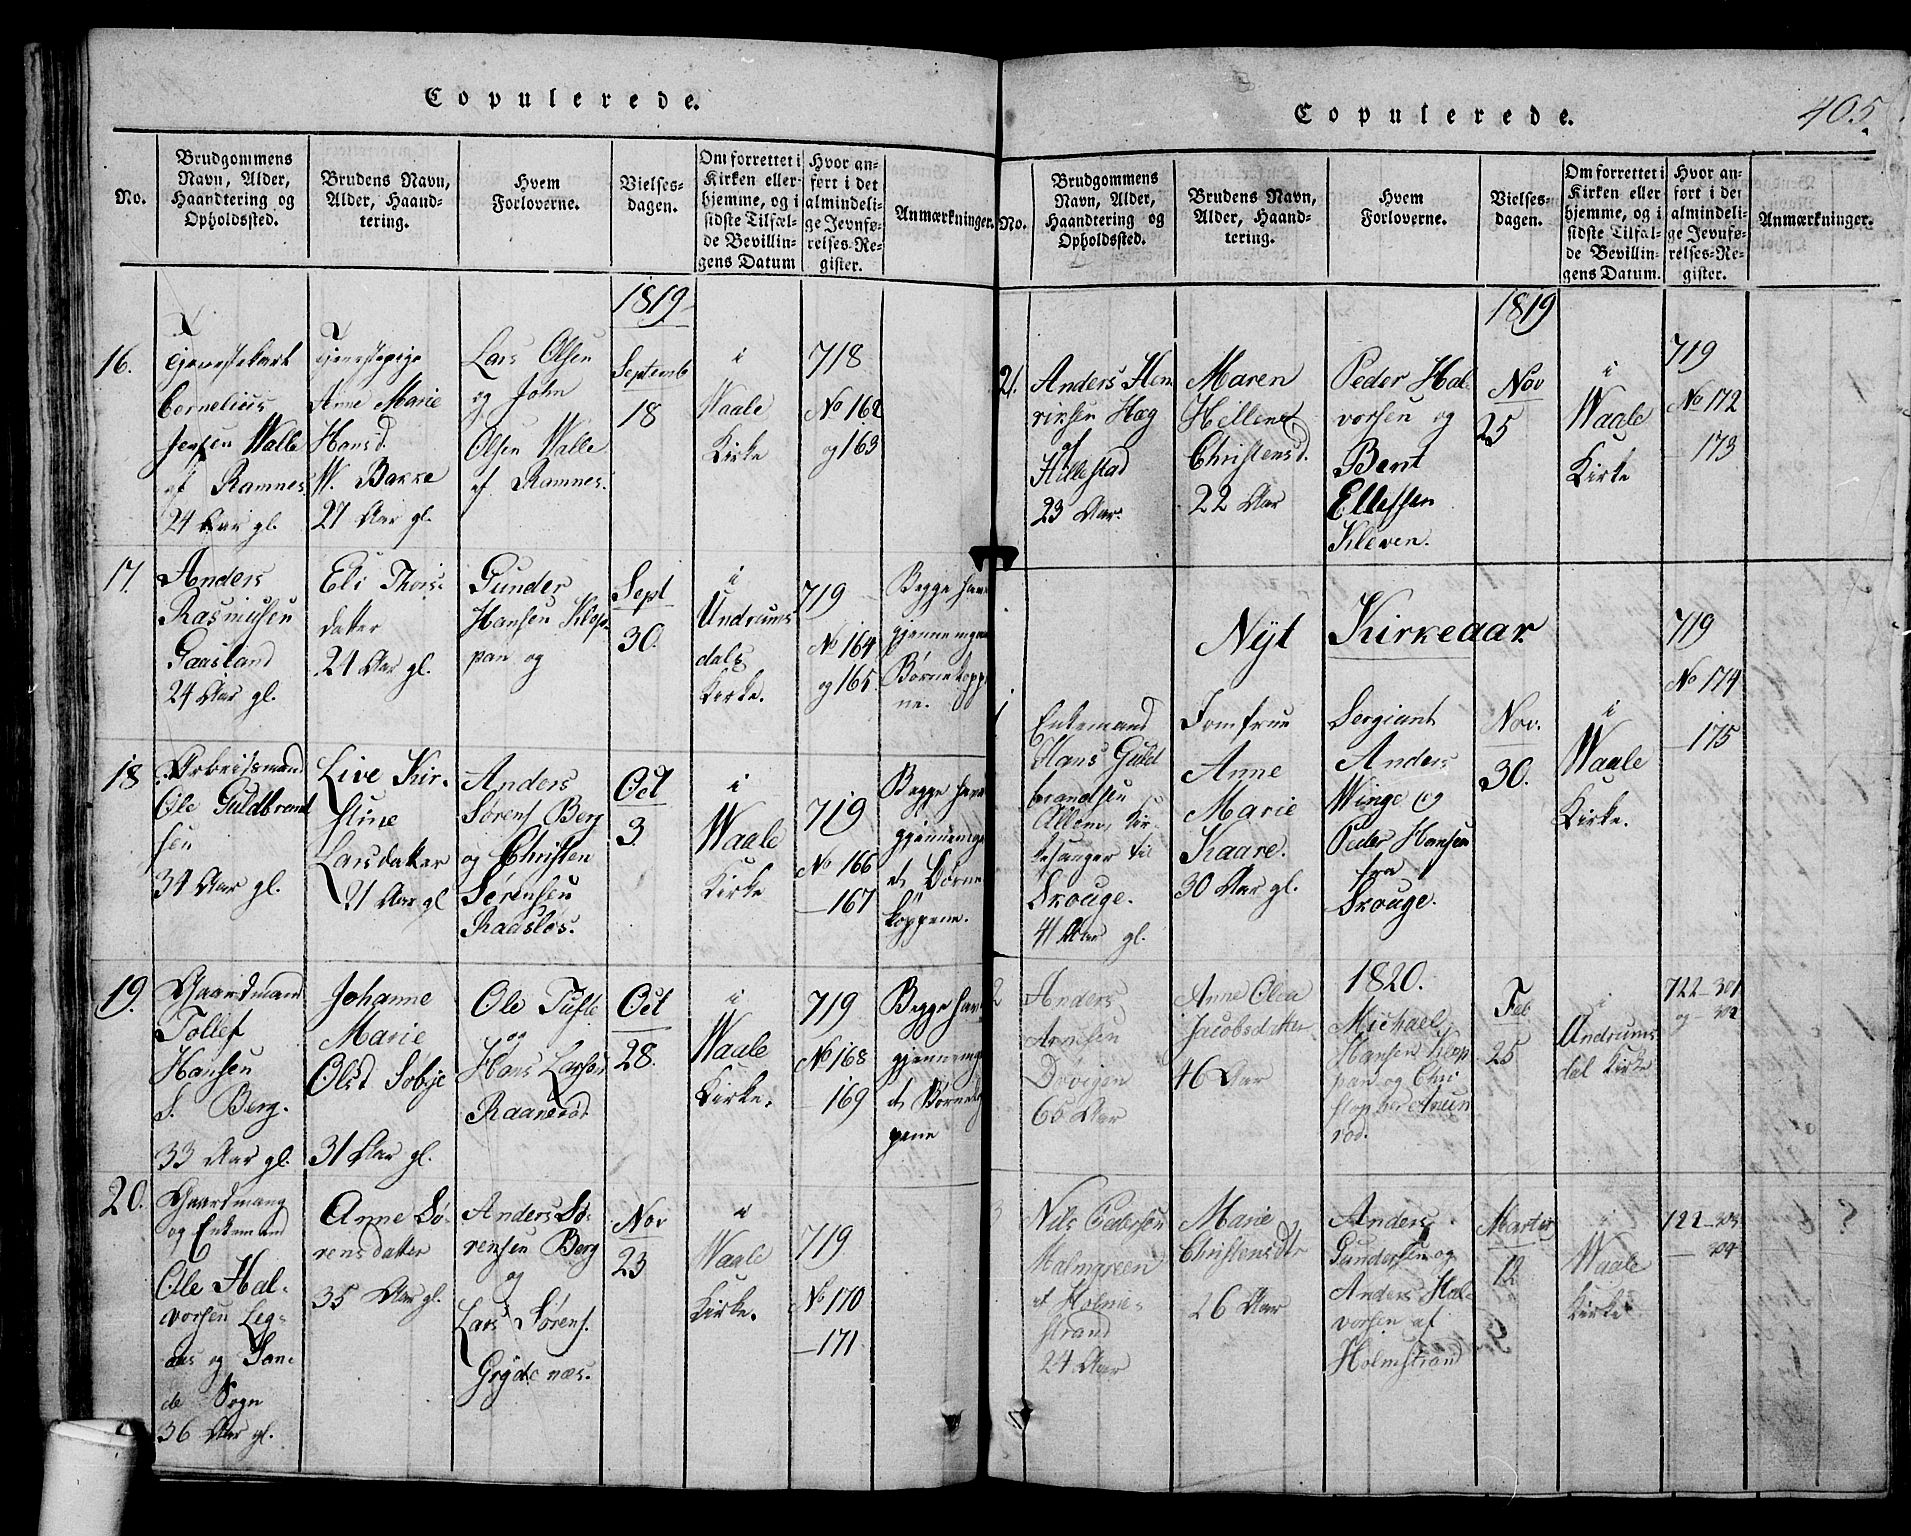 Copulerede.
No.
Brudgommens
Navn, Alder,
Haandtering og
Opholdssted.
Brudens Navn,
Alder, Haand-
tering.
Hvem
Forloverne.
Vielses-
dagen.
Om forrettet i
Kirken eller
hjemme, og i
sidste Tilfæl-
de Bevillin-
gens Datum
Hvor an-
ført i det
almindeli-
ge Jevnfø-
relses-Re-
gister.
Anmærkninger.
1819
16.
Tjenestekarl
Cornelius
Jensen Walle
af Ramnes
24 Aar gl.
Tjenestepige
Anne Marie
Hansd.
W. Bakke
27 Aar gl.
Lars Olsen
og John
Olsen Walle
af Ramnes.
Septemb
18
i
Waale
Kirke
718
No 162
og 163
17.
Anders
Rasmusen
Gaasland
24 Aar gl.
Eli Thors-
datter
21 Aar gl.
Gunder
Hansen Klop-
pan og
Sept
30.
i
Undrums
dals
Kirke.
719
No 164
og 165
Begge have
gjennemgaa
Børnekopp
ne.
18
Arbeidsmand
Ole Guldbrand
sen
31 Aar gl.
Live Kir-
stine
Larsdatter
21 Aar gl
Anders
Sørens Berg
og Christen
Sørensen
Raasløs.
Oct
3.
i
Waale
Kirke
719
No 166
—167
Begge have
gjennemga
et Børne-
koppene.
19.
Gaardmand
Tollef
Hansen
S. Berg.
33 Aar gl.
Johanne
Marie
Olsd Søbye
31 Aar gl.
Ole Tufte
og
Hans Larsen
Raanerød.
Oct
28.
i
Waale
Kirke.
719
No 168
—169
Begge hav
gjennemga
et Børneko
pene
20.
Gaardmand
og Enkemand
Ole Hal-
vorsen Leg-
aas og San-
de Sogn
36 Aar gl.
Anne Sø-
rensdatter
35 Aar gl.
Anders Sø-
rensen Berg
og
Lars Sørens.
Grydenæs.
Nov
23
i
Waale
Kirke.
719
No 170
—171
Copulerede.
405.
No.
Brudgommens
Navn, Alder,
Haandtering og
Opholdssted.
Brudens Navn,
Alder, Haand-
tering.
Hvem
Forloverne.
Vielses-
dagen.
Om forrettet i
Kirken eller
hjemme, og i
sidste Tilfæl-
de Bevillin-
gens Datum.
Hvor an-
ført i det
almindeli-
ge Jevnfø-
relses-Re-
gister.
Anmærkninger.
1819
21.
Anders Hen
riksen Hæg
af
Hillestad
23 Aar.
Maren
Hellene
Christensd.
22 Aar
Peder Hal
vorsen og
Bent
Ellefsen
Kleven.
Nov
25
i
Waale
Kirke
719
No 172
—173
Nyt Kirkeaar
1
Enkemand
Hans Guld
brandsen
Allum, Kir-
kesanger til
Skouge.
41 Aar gl.
Jomfrue
Anne
Marie
Kaare.
30 Aar gl.
Sergiant
Anders
Winge og
Peder Hansen
fra
Skouge.
Nov.
30.
i
Waale
Kirke.
719
No 174
175
1820.
2
Anders
Arnesen
Døvigen
65 Aar
Anne Olea
Jacobsdatter
46 Aar
Michael
Hansen Klop
pan og Chri
stopher Aneun
rød.
Feb
25
i
Undrums
dal Kirke
722-301
og-302
3
Nils Pedersen
Malmgreen
af Holme-
strand
24 Aar
Marie
Christensdtr
26 Aar
Anders
Gundersen og
Anders Hal-
vorsen af
Holmstrand
Martii
12
i
Waale
Kirke
722-303
—304